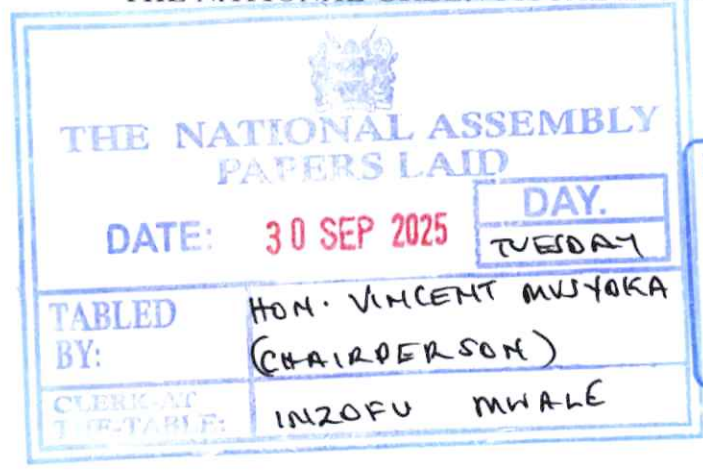 THE NATIONAL ASSEMBLY
PAPERS LAID
DATE: 30 SEP 2025 DAY.
TUESDAY
TABLED BY: HON. VINCENT MUSYOKA
(CHAIRPERSON)
CLERK-AT THE-TABLE: INZOFU MWALE